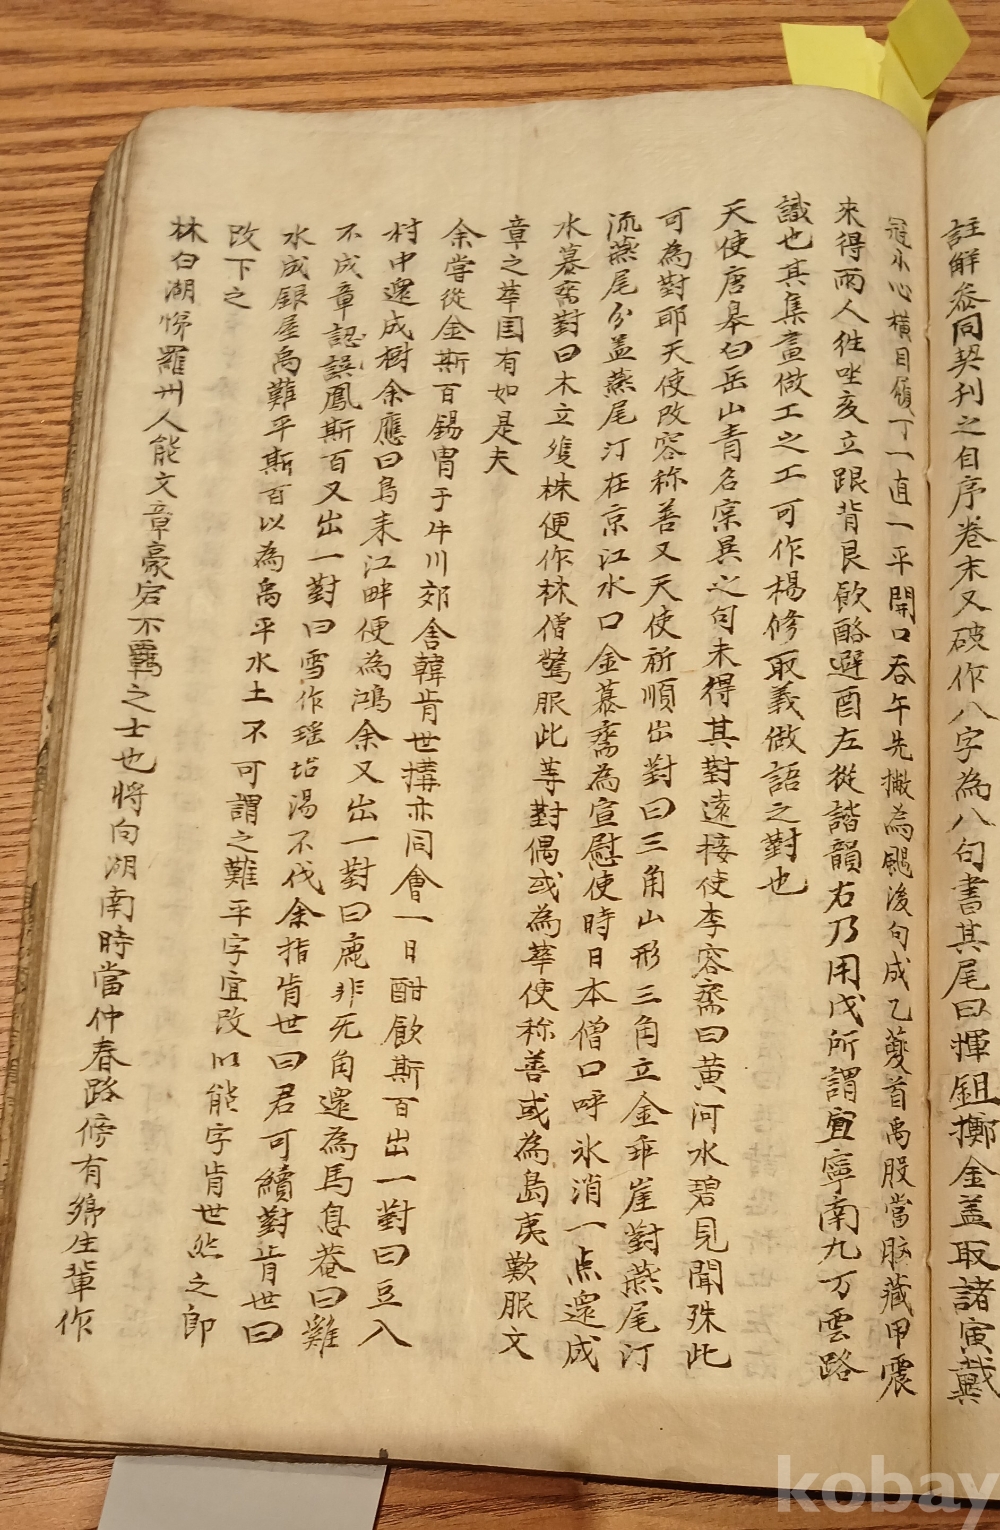 註解叅同契刊之自序卷末又破作八字為八句書其尾曰揮鋤擲金盖取諸寅戴
冠小心橫目傾丁一直一平開口吞午先撇為颺後句成乙夔首禹股當胘藏甲震
来得兩人従坐亥立跟背艮飮酪避酉左從諧韻右乃用戊所謂宜寧南九万雲路
識也其集晝做工之工可作楊修取義做語之對也
天使唐皋曰岳山青名宲異之句未得其對遠接使李容齋曰黃河水碧見聞殊此
可為對耶天使改容称善又天使祈順出對曰三角山形三角立金乖崖對燕尾汀
流燕尾分盖燕尾汀在京江水口金慕齋為宣慰使時日本僧口呼氷消一点還成
水慕齋對曰木立雙株便作林僧驚服此等對偶或為華使称善或為島夷歎服文
章之華国有如是夫
余嘗從金斯百錫胄于牛川郊舍韓肯世搆亦同會一日酣飮斯百出一對曰豆入
村中還成樹余應曰鳥来江畔便為鴻余又出一對曰鹿非旡角還為馬息菴曰難
不成章認誤鳳斯百又出一對曰雪作瑤坮湯不伐余指肯世曰君可續對肯世曰
水成銀屋禹難平斯百以為禹平水土不可謂之難平字宜改以能字肯世然之郎
改下之
林白湖悌羅州人能文章豪宕不羈之士也將向湖南時當仲春路傍有鄉生輩作
kobay